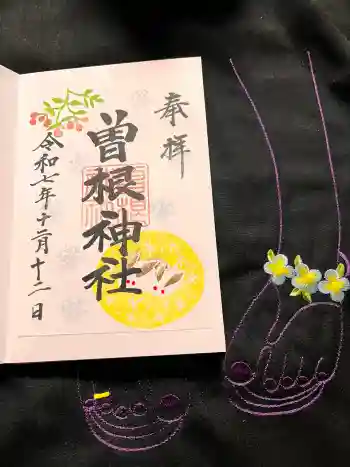 奉拝
曽根神社
令和七年十二月十二日